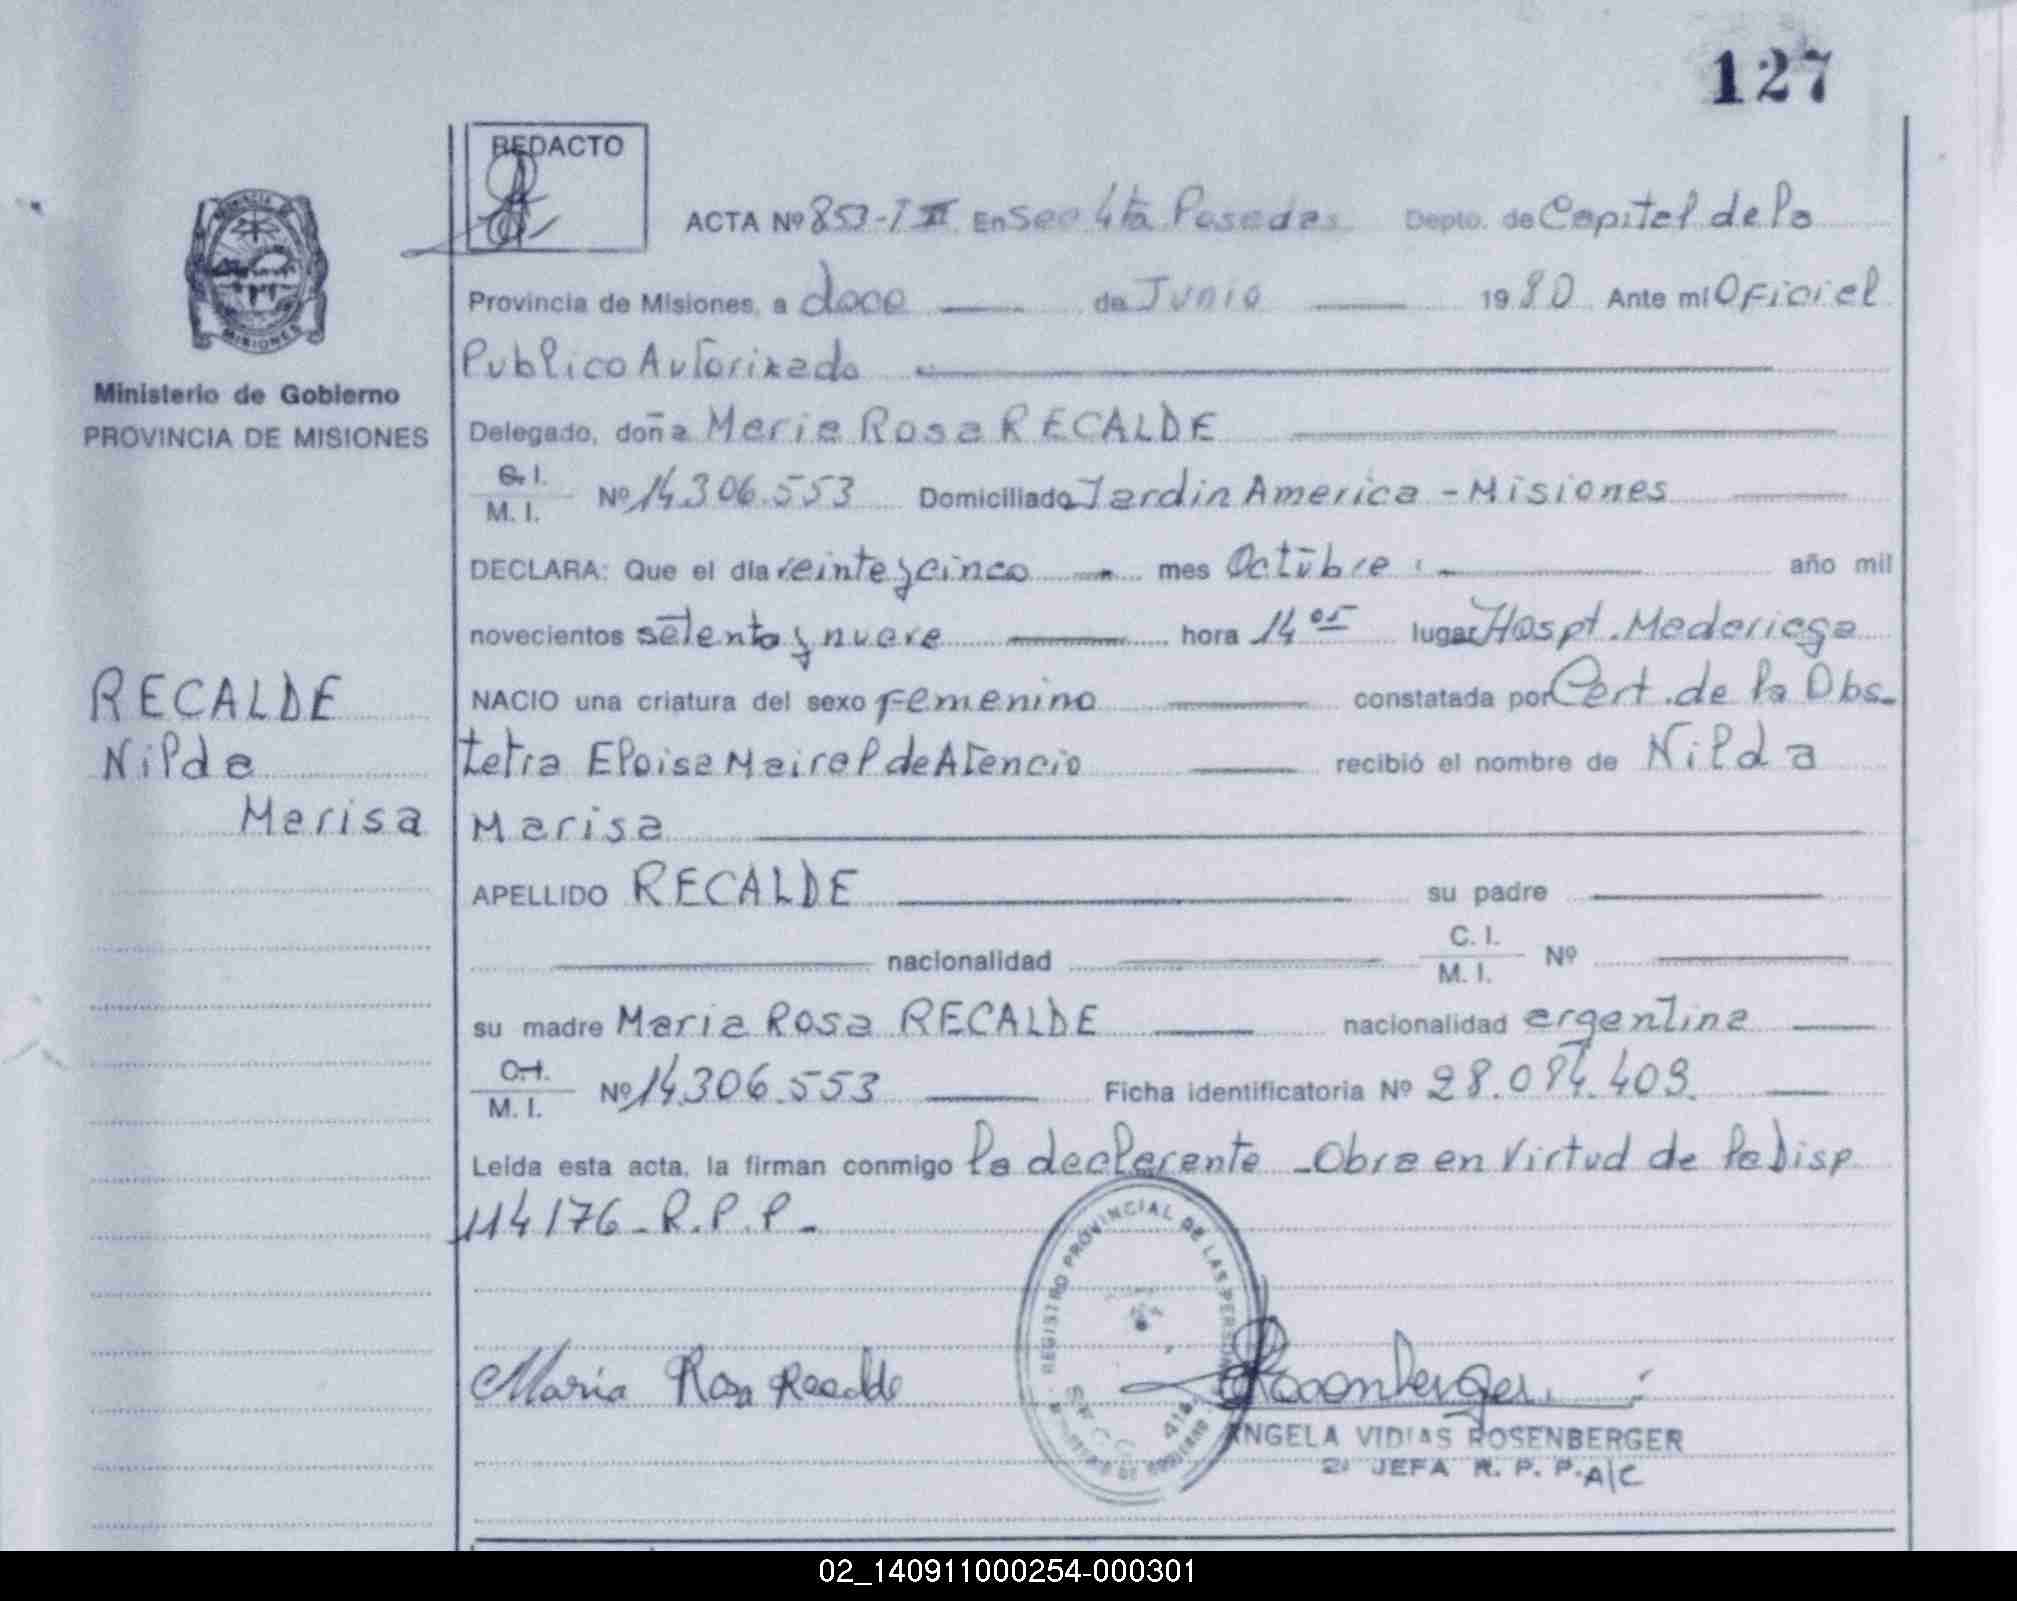 127
REDACTO
ACTA Nº 853-T III En Secc 4ta Posadas Depto. de Capital de la
Provincia de Misiones, a doce de Junio 1980 Ante mi Oficial
Publico Autorizado
Ministerio de Gobierno
PROVINCIA DE MISIONES
Delegado, doña Maria Rosa RECALDE
C. I.
M. I. Nº 14.306.553 Domiciliado Jardin America - Misiones
DECLARA: Que el día veinte y cinco mes Octubre año mil
novecientos setenta y nueve hora 14 05 lugar Hospt. Madariaga
RECALDE
Nilda
Marisa
NACIO una criatura del sexo Femenino constatada por Cert. de la Obs-
tetra Eloisa Mairel de Atencio recibió el nombre de Nilda
Marisa
APELLIDO RECALDE su padre
nacionalidad C. I.
M. I. Nº
su madre Maria Rosa RECALDE nacionalidad argentina
C. I.
M. I. Nº 14.306.553 Ficha identificatoria Nº 28.084.409.
Leida esta acta, la firman conmigo la declarante - Obra en Virtud de la Disp
114/76 - R.P.P. -
REGISTRO PROVINCIAL DE LAS PERSONAS
Maria Rosa Recalde
Rosenberger
ANGELA VIDIAS ROSENBERGER
2ª JEFA R. P. P. A/C
02_140911000254-000301